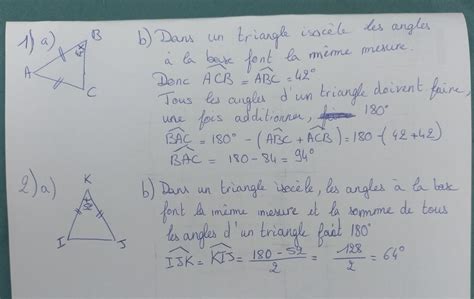 1) a)
B
42
A
C
b) Dans un triangle isocèle les angles
à la base font la même mesure.
Donc ACB = ABC = 42°
Tous les angles d'un triangle doivent faire,
une fois additionner, 180°
BAC = 180° - (ABC + ACB) = 180 - (42 + 42)
BAC = 180 - 84 = 94°
2) a)
K
52
I
J
b) Dans un triangle isocèle, les angles à la base
font la même mesure et la somme de tous
les angles d'un triangle fait 180°
IJK = KIJ = 180 - 52 / 2 = 128 / 2 = 64°